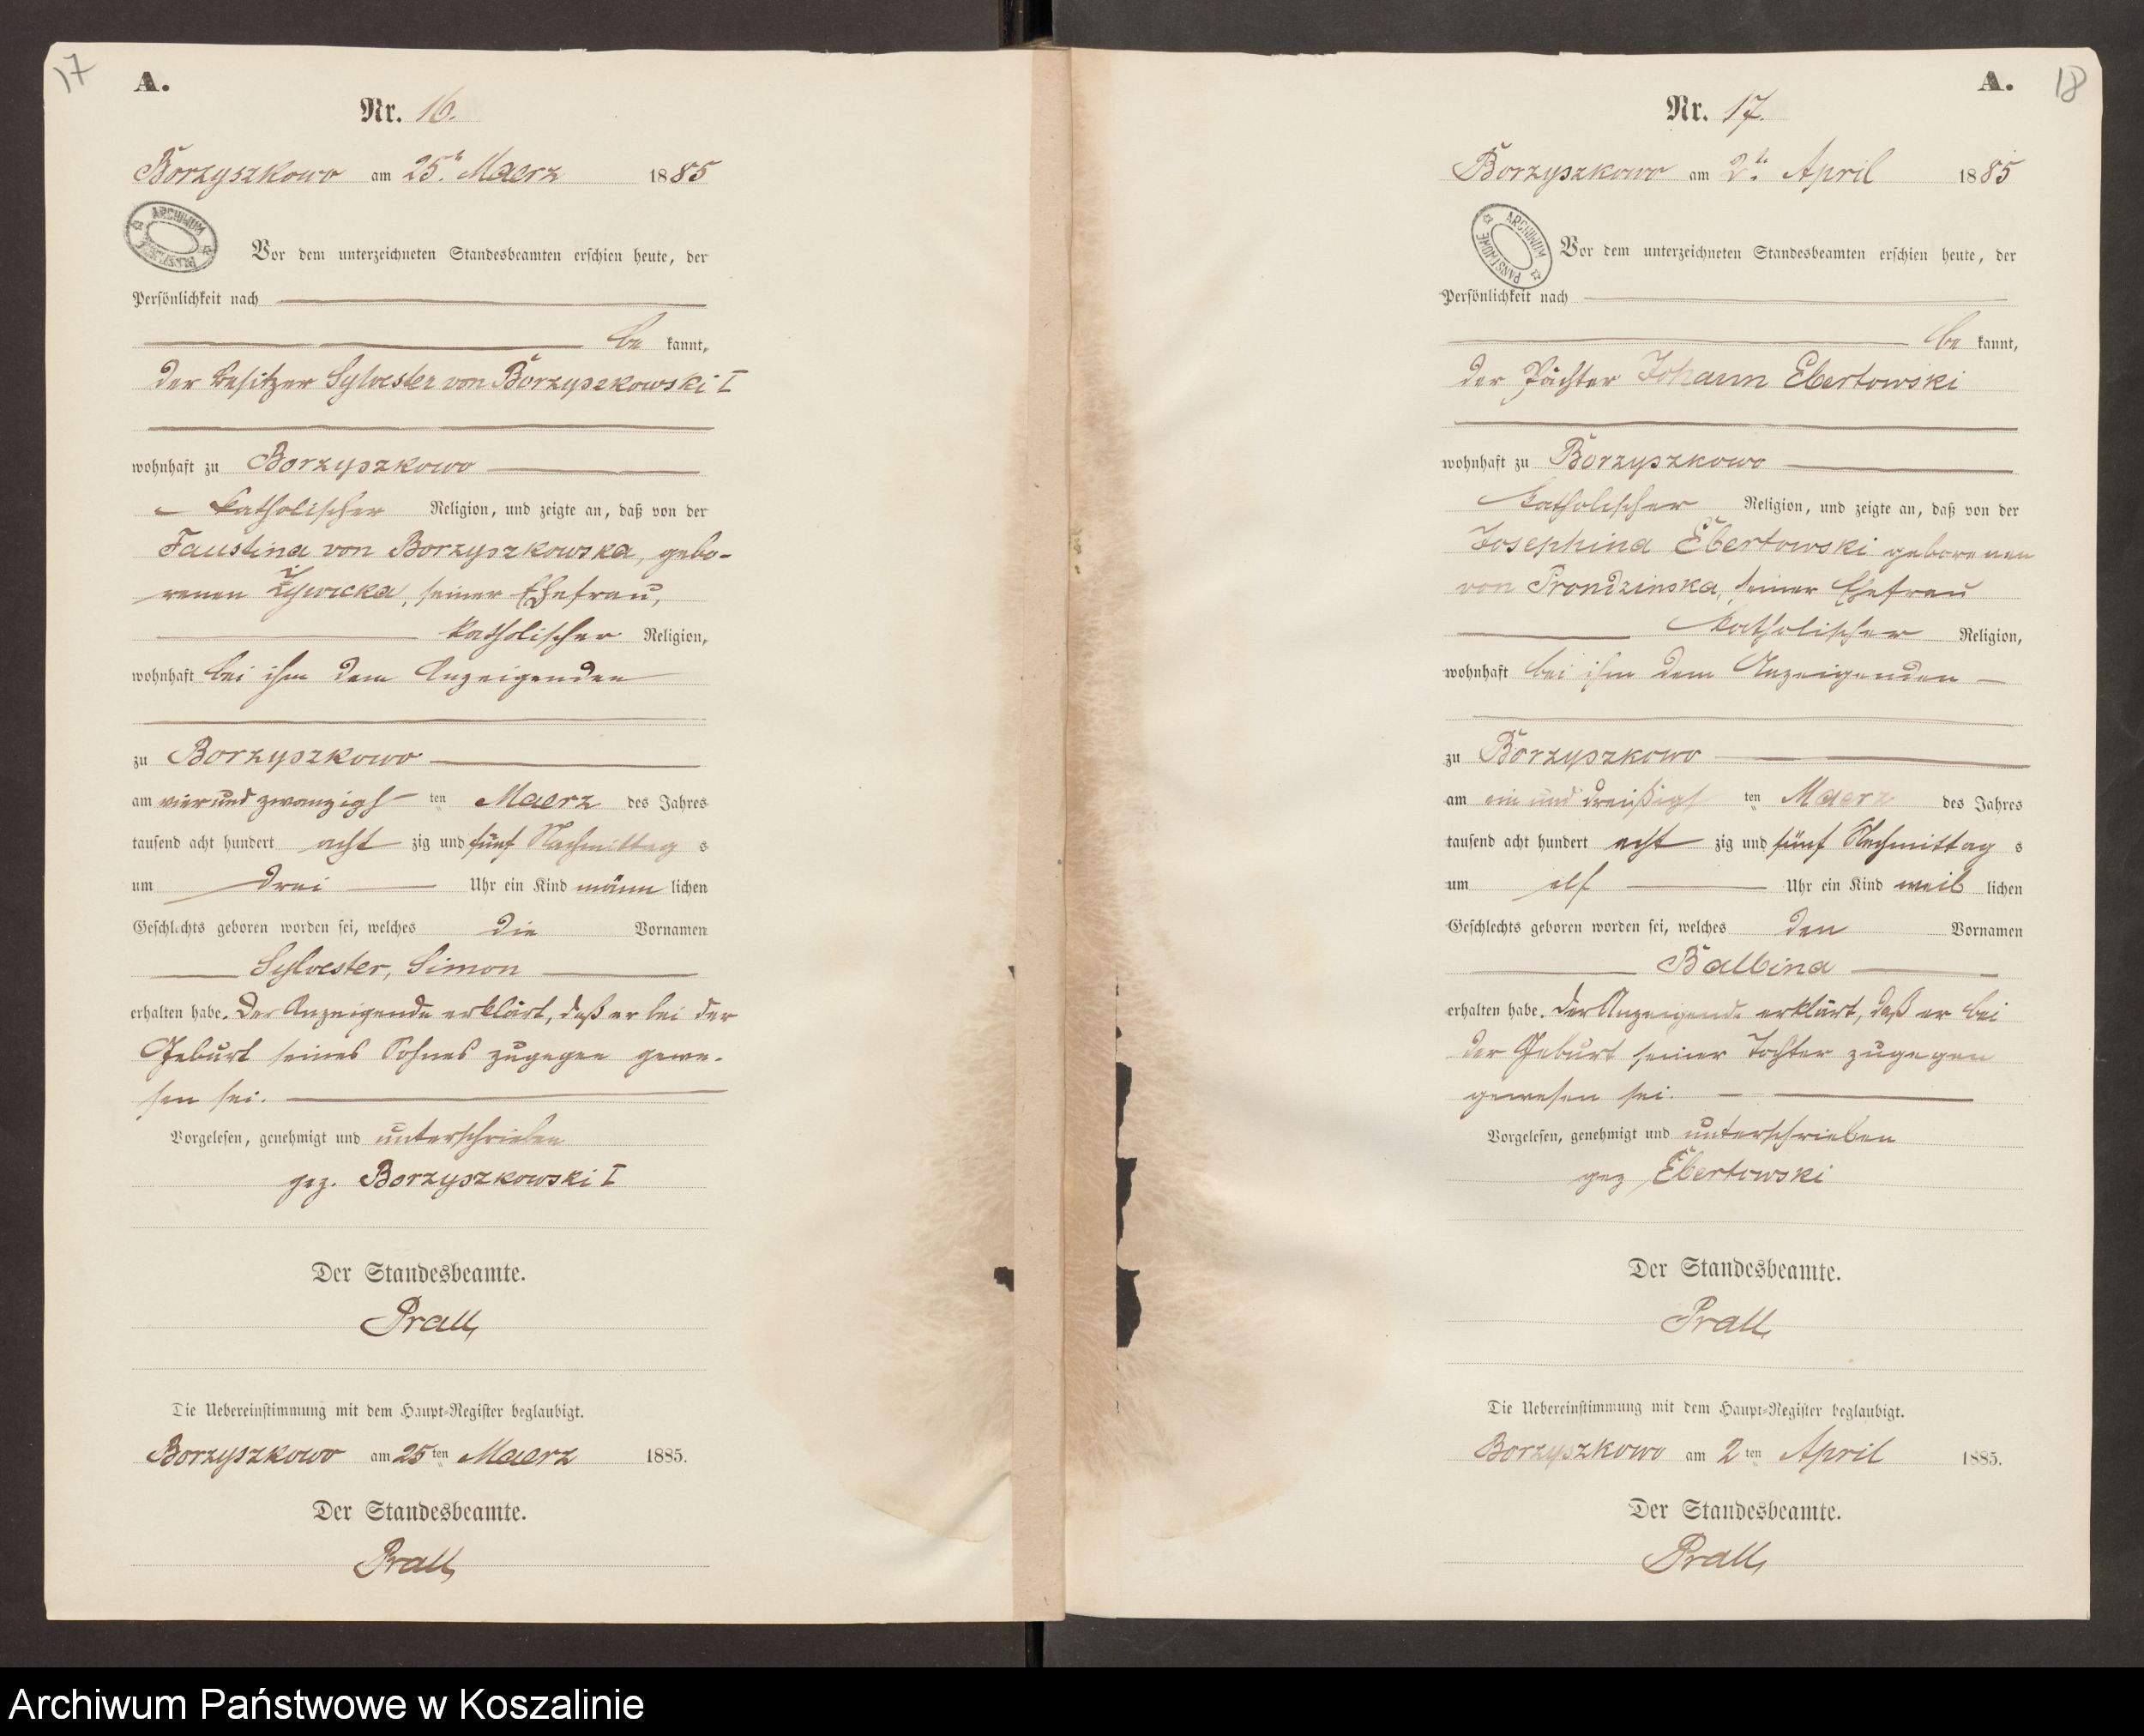 17
A.
Nr. 16.
Borzyszkowo am 25t. Maerz 1885
ARCHIWUM PAŃSTWOWE
Vor dem unterzeichneten Standesbeamten erschien heute, der
Persönlichkeit nach
be kannt,
der Besitzer Sylvester von Borzyszkowski I
wohnhaft zu Borzyszkowo
katholischer Religion, und zeigte an, daß von der
Faustina von Borzyszkowska, gebo-
renen Żywicka, seiner Ehefrau,
katholischer Religion,
wohnhaft bei ihm dem Anzeigenden
zu Borzyszkowo
am vierundzwanzigst ten Maerz des Jahres
tausend acht hundert acht zig und fünf Nachmittag s
um drei Uhr ein Kind männ lichen
Geschlechts geboren worden sei, welches die Vornamen
Sylvester, Simon
erhalten habe. Der Anzeigende erklärt, daß er bei der
Geburt seines Sohnes zugegen gewe-
sen sei.
Vorgelesen, genehmigt und unterschrieben
gez. Borzyszkowski I
Der Standesbeamte.
Prall,
Die Uebereinstimmung mit dem Haupt-Register beglaubigt.
Borzyszkowo am 25 ten Maerz 1885.
Der Standesbeamte.
Prall,
A.
18
Nr. 17.
Borzyszkowo am 2t. April 1885
ARCHIWUM PAŃSTWOWE
Vor dem unterzeichneten Standesbeamten erschien heute, der
Persönlichkeit nach
be kannt,
der Pächter Johann Ebertowski
wohnhaft zu Borzyszkowo
katholischer Religion, und zeigte an, daß von der
Josephina Ebertowski geborenen
von Prondzinska, seiner Ehefrau
katholischer Religion,
wohnhaft bei ihm dem Anzeigenden
zu Borzyszkowo
am ein und dreißigst ten Maerz des Jahres
tausend acht hundert acht zig und fünf Nachmittag s
um elf Uhr ein Kind weib lichen
Geschlechts geboren worden sei, welches den Vornamen
Balbina
erhalten habe. Der Anzeigende erklärt, daß er bei
der Geburt seiner Tochter zugegen
gewesen sei.
Vorgelesen, genehmigt und unterschrieben
gez Ebertowski
Der Standesbeamte.
Prall,
Die Uebereinstimmung mit dem Haupt-Register beglaubigt.
Borzyszkowo am 2 ten April 1885.
Der Standesbeamte.
Prall,
Archiwum Państwowe w Koszalinie